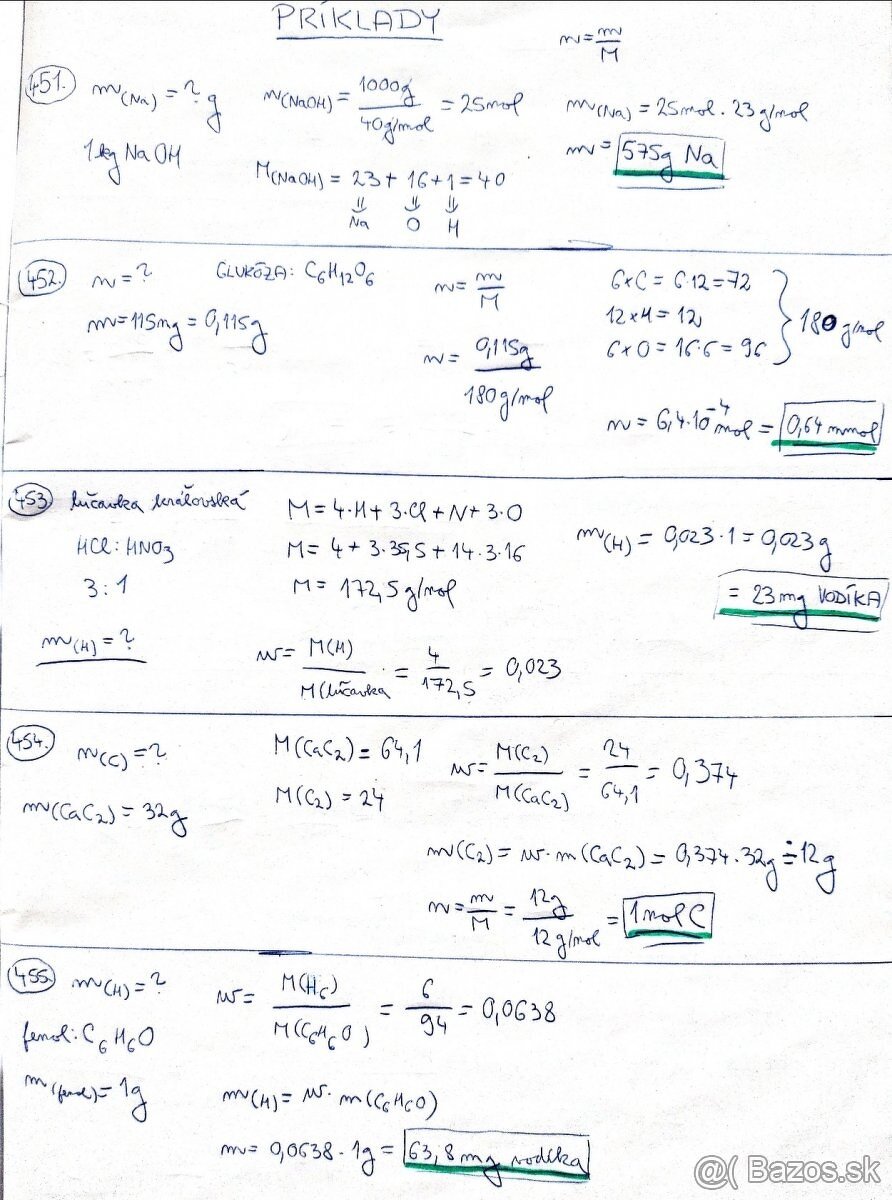 PRÍKLADY
n = m/M
451. m(Na) = ? g
1kg NaOH
n(NaOH) = 1000g / 40g/mol = 25mol
M(NaOH) = 23 + 16 + 1 = 40
⇓ ⇓ ⇓
Na O H
m(Na) = 25mol · 23 g/mol
m = 575g Na
452. n = ?
m = 115mg = 0,115g
GLUKÓZA: C6H12O6
n = m/M
n = 0,115g / 180g/mol
6×C = 6·12 = 72
12×H = 12
6×O = 16·6 = 96
180 g/mol
n = 6,4·10⁻⁴ mol = 0,64 mmol
453. lúčavka kráľovská
HCl : HNO3
3 : 1
m(H) = ?
M = 4·H + 3·Cl + N + 3·O
M = 4 + 3·35,5 + 14·3·16
M = 172,5 g/mol
w = M(H) / M(lúčavka = 4 / 172,5 = 0,023
m(H) = 0,023·1 = 0,023g
= 23mg VODÍKA
454. n(C) = ?
m(CaC2) = 32g
M(CaC2) = 64,1
M(C2) = 24
w = M(C2) / M(CaC2) = 24 / 64,1 = 0,374
m(C2) = w·m(CaC2) = 0,374·32g ≐ 12g
n = m/M = 12g / 12g/mol = 1mol C
455. m(H) = ?
fenol: C6H6O
m(fenol) = 1g
w = M(H6) / M(C6H6O) = 6 / 94 = 0,0638
m(H) = w·m(C6H6O)
m = 0,0638·1g = 63,8mg vodíka
@( Bazos.sk